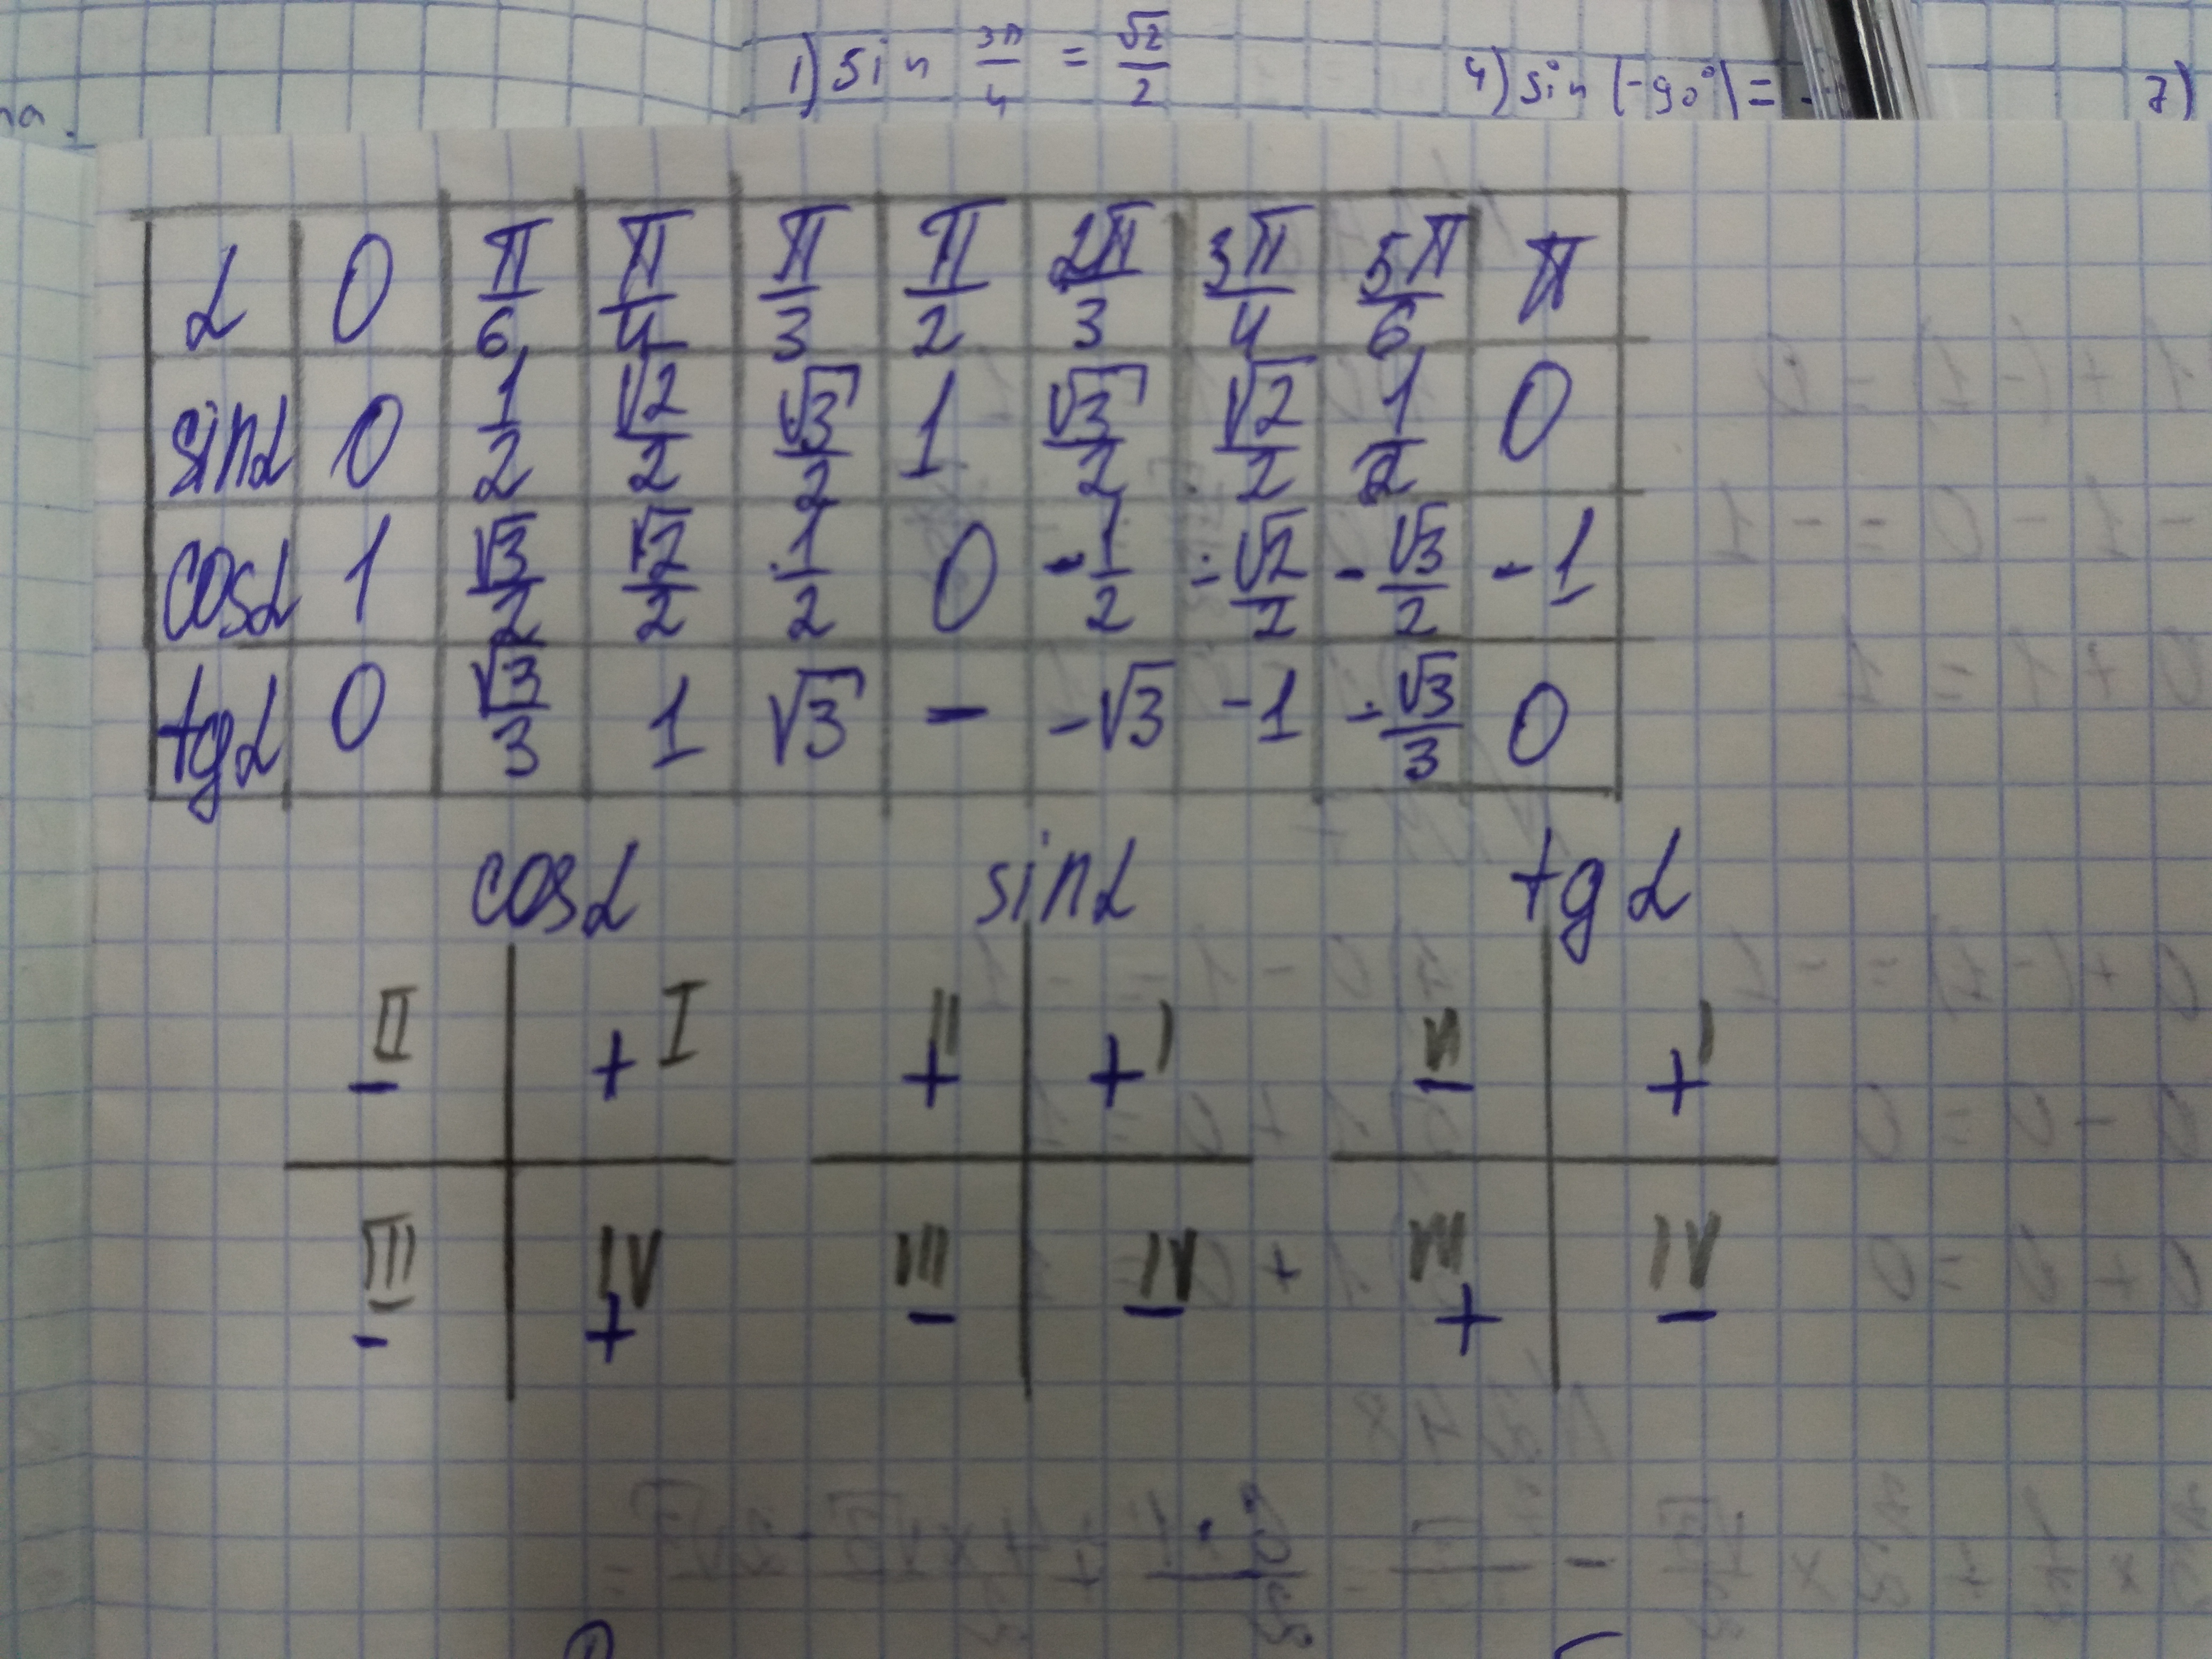 1) sin 3π/4 = √2/2 4) sin (-90°) = - 7)
α 0 π/6 π/4 π/3 π/2 2π/3 3π/4 5π/6 π
sinα 0 1/2 √2/2 √3/2 1 √3/2 √2/2 1/2 0
cosα 1 √3/2 √2/2 1/2 0 -1/2 -√2/2 -√3/2 -1
tgα 0 √3/3 1 √3 - -√3 -1 -√3/3 0
cosα sinα tgα
II I II I II I
- + + + - +
III IV III IV III IV
- + - - + -